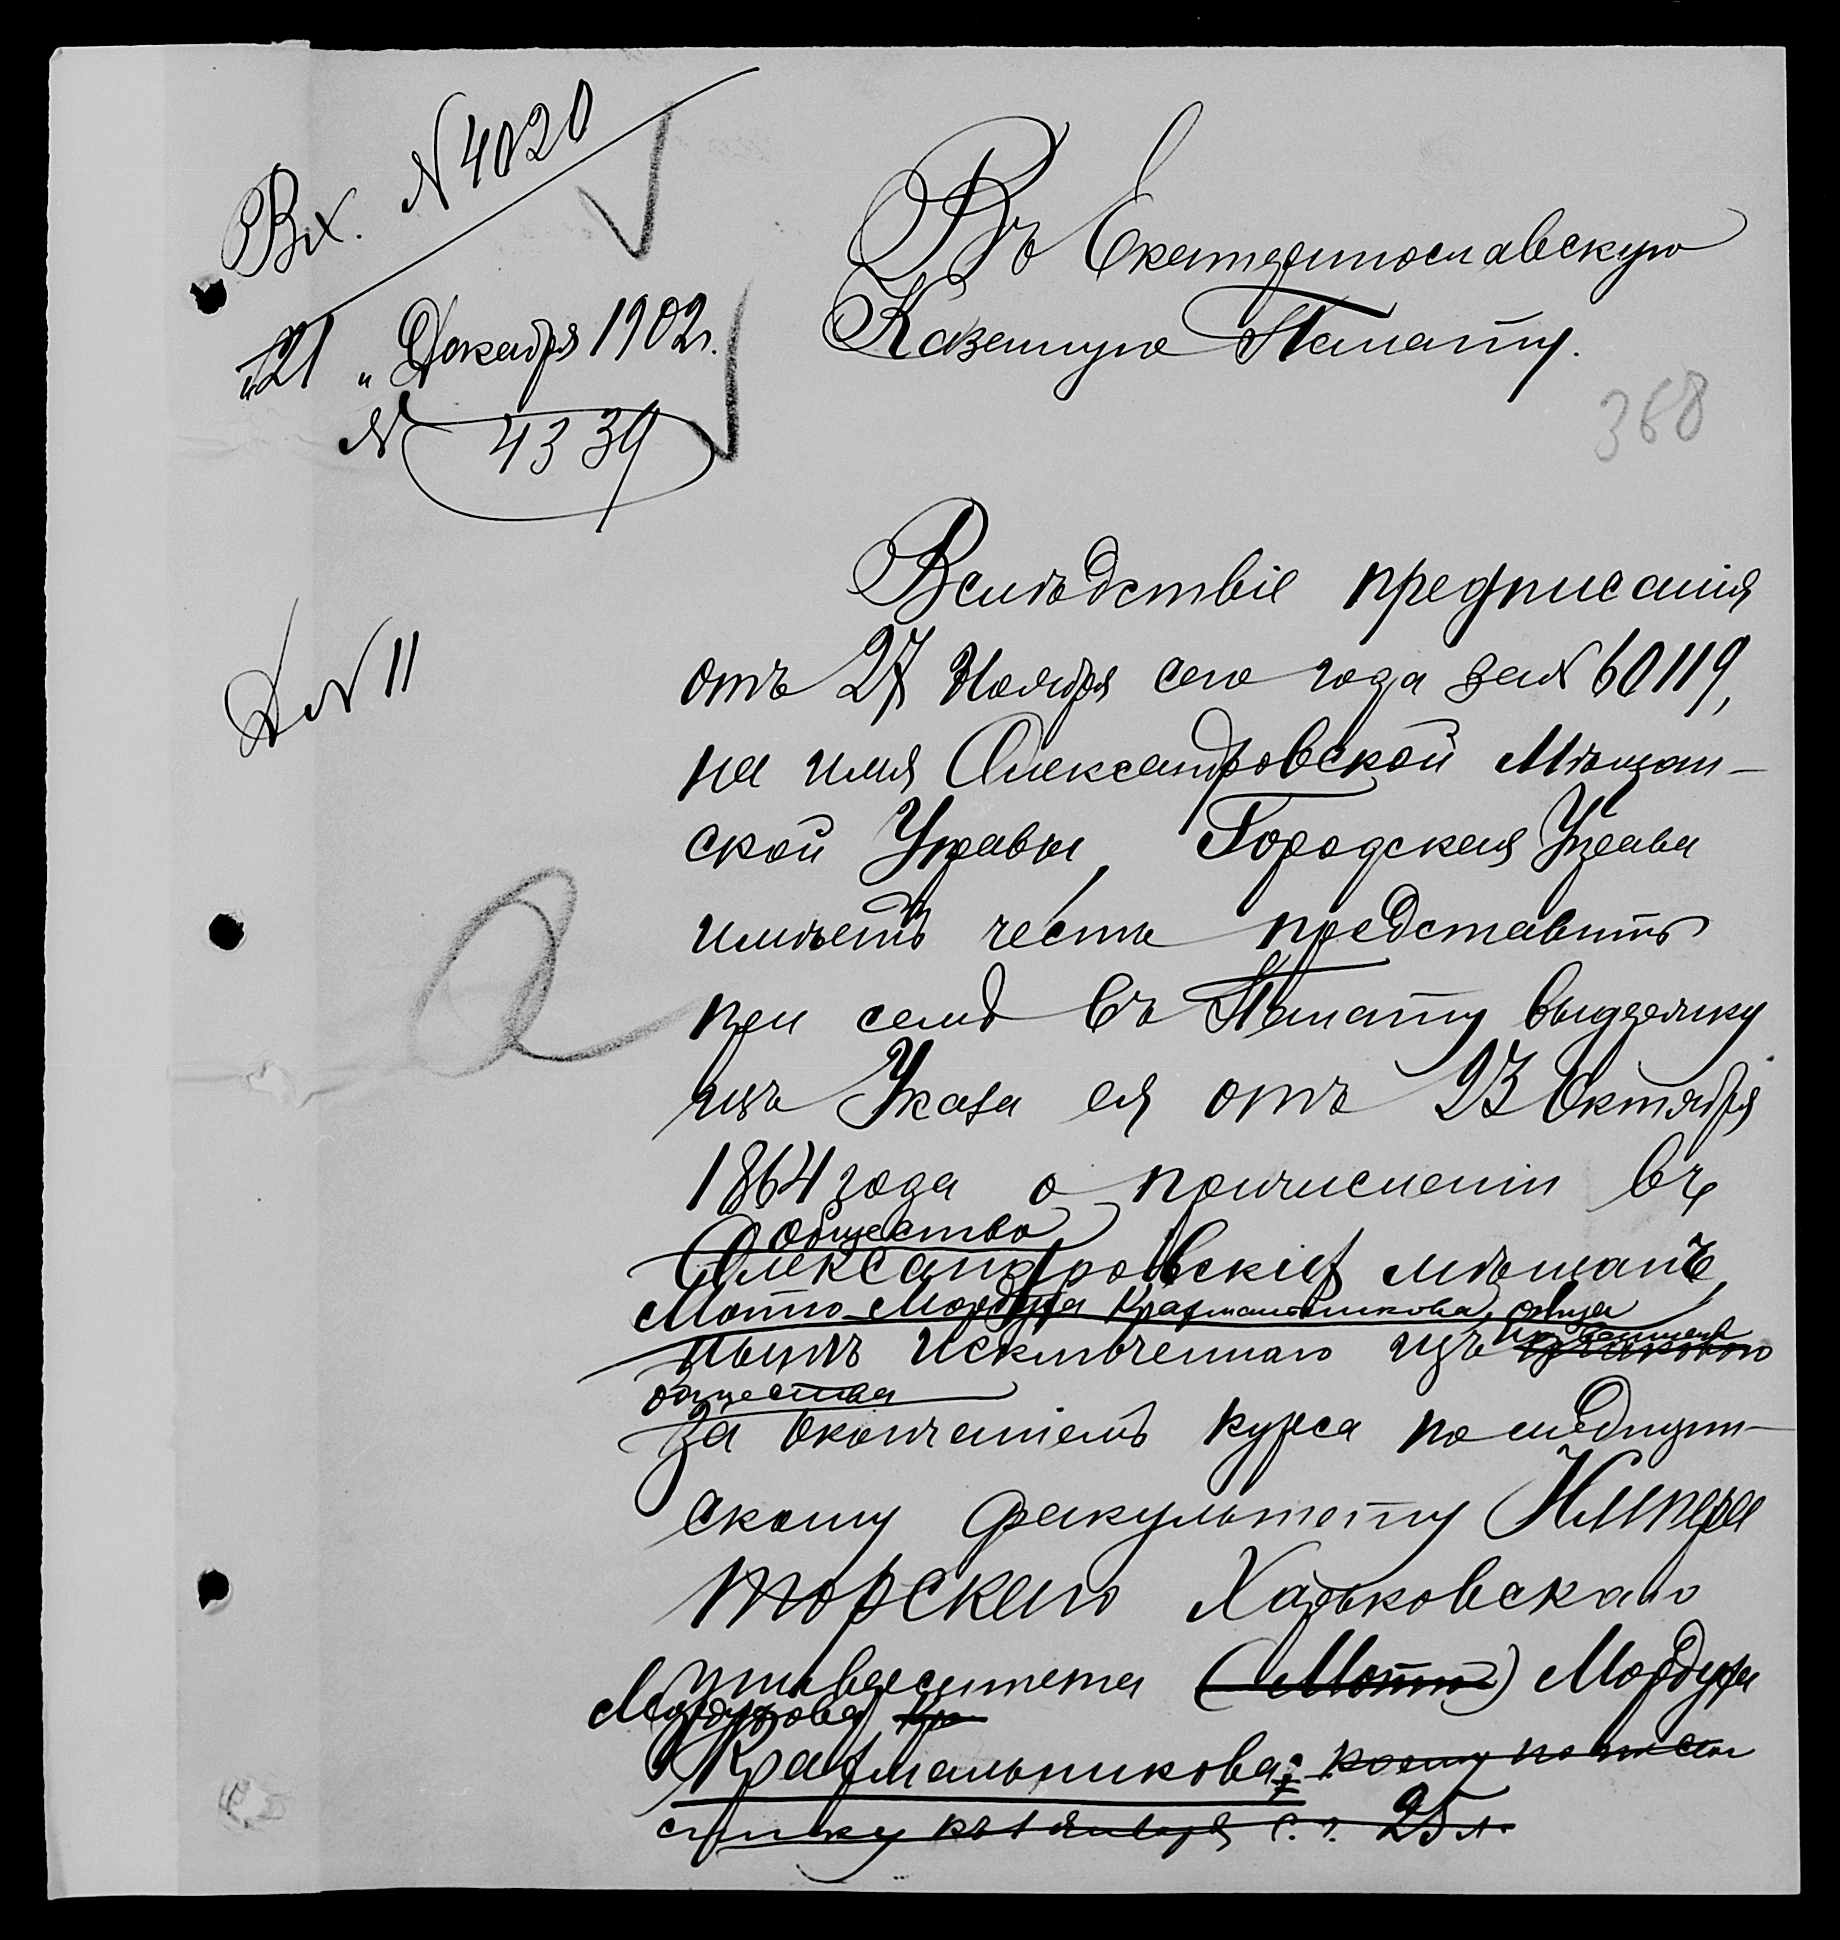 Вх. N 4020
"21" Декабря 1902 г.
N 4339
Въ Екатеринославскую
Казенную Палату.
368
Д N 11
Вслѣдствіе предписанія
отъ 27 Ноября сего года за N 60119,
на имя Александровской Мѣщан-
ской Управы, Городская Управа
имѣетъ честь представить
при семъ въ Палату выдержку
изъ Указа ея отъ 23 Октября
1864 года о причисленіи въ
общество
Александровскихъ мѣщанъ,
Мотто-Мордуха Крафмальникова, отца
нынѣ исключеннаго изъ
общества
за окончаніемъ курса по медицин-
скому факультету Импера
торскаго Харьковскаго
университета (Мотто) Мордуха
Мордухова Кра
Крафмальникова; коему по
списку къ 1 Января с. г. 25 л.